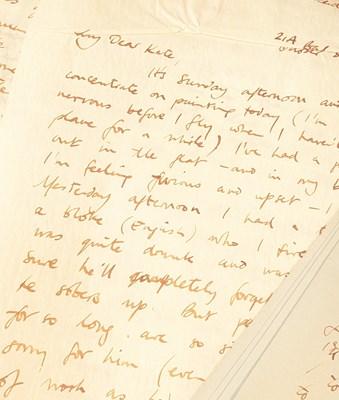 21A
My Dear Kate,
It's Sunday afternoon and
concentrate on painting today (I'm
nervous before I fly when I haven't
plane for a while) I've had a
out in the flat – and in my
I'm feeling furious and upset –
Yesterday afternoon I had a
a bloke (English) who I
was quite drunk and was
sure he'll completely forget
he sobers up. But
for so long. are so
sorry for him (even
of work as